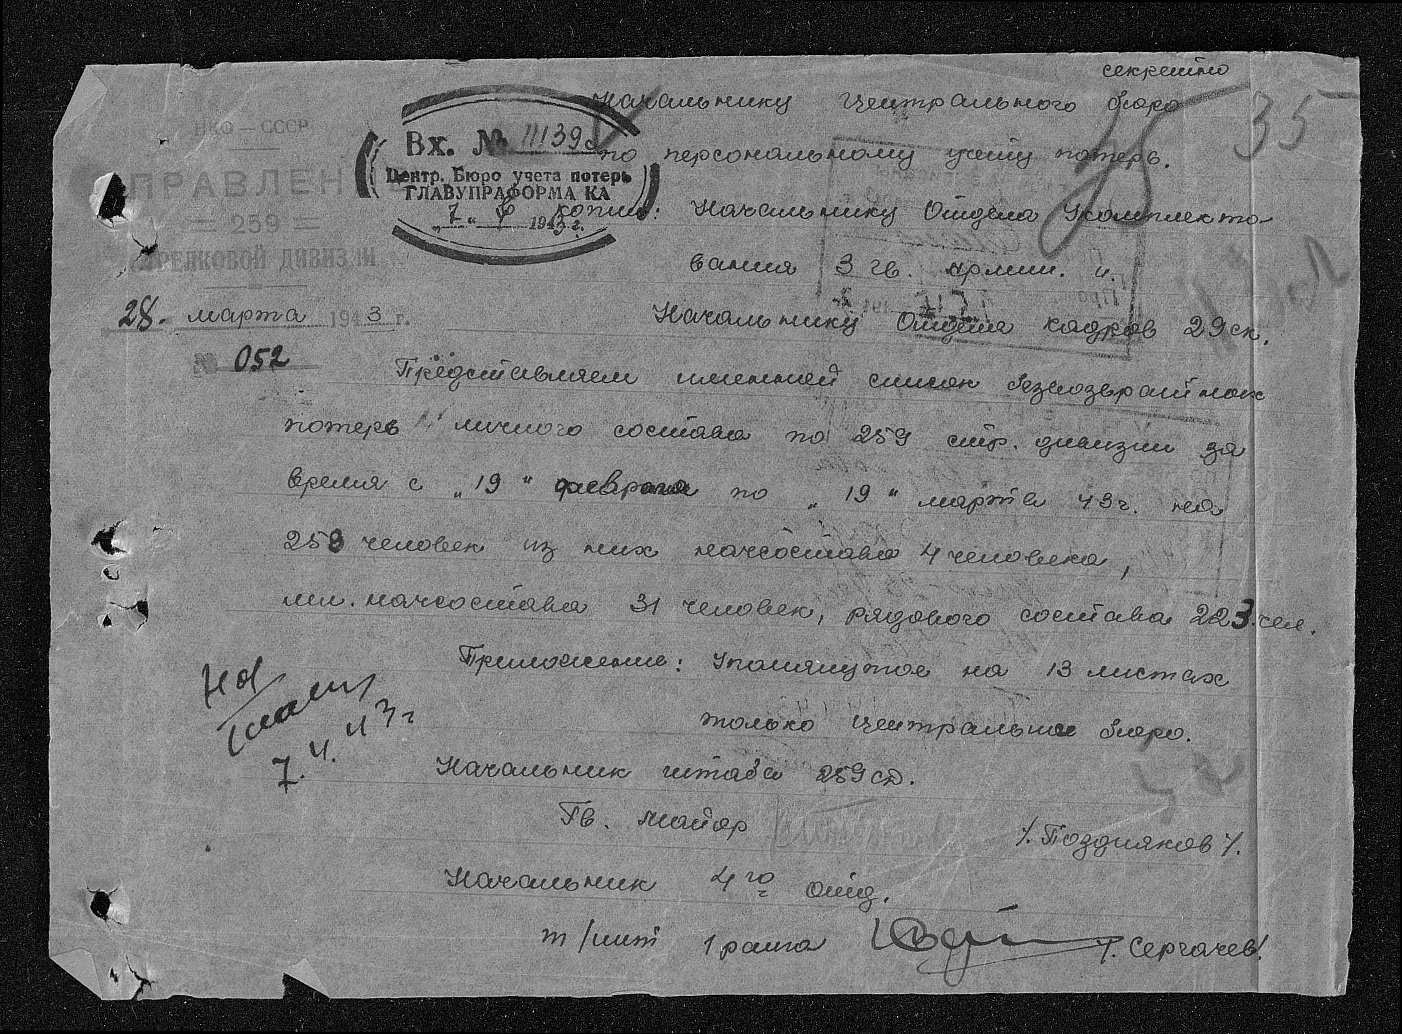 секретно
35
НКО — СССР
УПРАВЛЕНИЕ
— 259 —
СТРЕЛКОВОЙ ДИВИЗИИ
28. марта 1943 г.
№ 052
Вх. № 11139с
Центр. Бюро учета потерь
ГЛАВУПРАФОРМА КА
"7" 4 1943 г.
Начальнику Центрального бюро
по персональному учету потерь.
копия: Начальнику Отдела Укомплекто-
вания 3 гв. армии. и.
Начальнику Отдела кадров 29 ск.
Представляем именной список безвозвратных
потерь личного состава по 259 стр. дивизии за
время с "19" февраля по "19" марта 43г. на
258 человек из них начсостава 4 человека,
мл. начсостава 31 человек, рядового состава 223 чел.
Приложение: Упомянутое на 13 листах
только Центральное бюро.
7.4.43г
Начальник штаба 259 сд.
Гв. майор /. Поздняков /.
Начальник 4го отд.
т/инт 1 ранга /. Сергачев/.